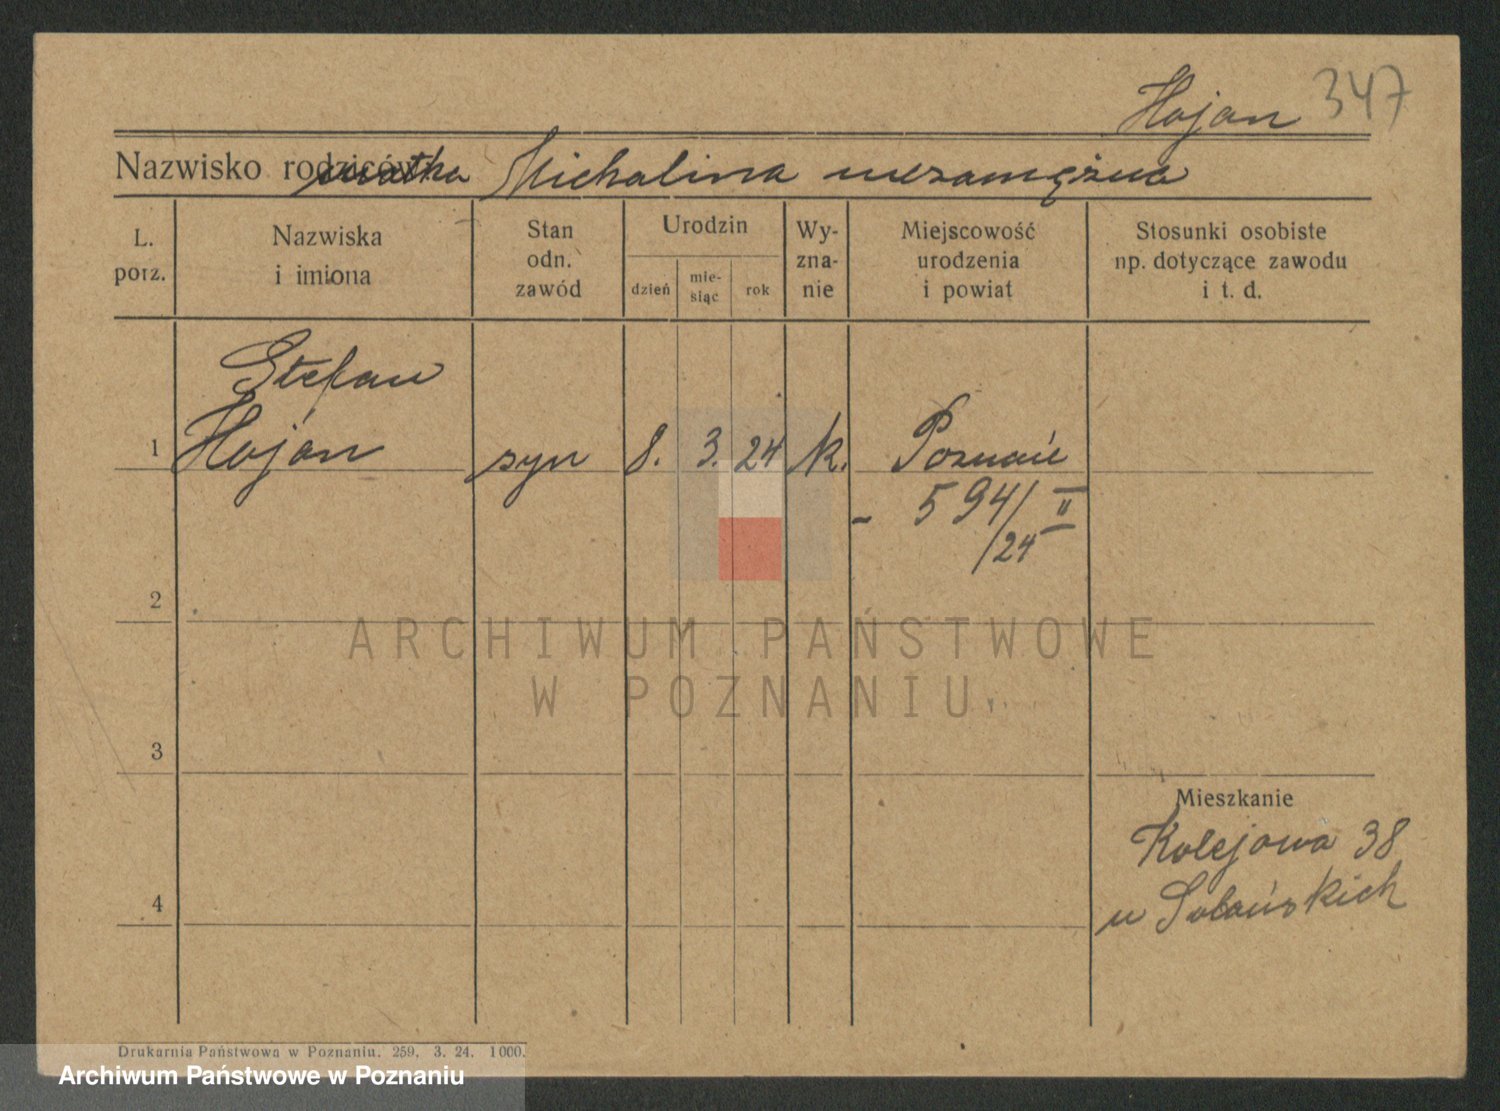 Hojan 347
Nazwisko rodziców matka Michalina niezamężna
L. porz.
Nazwiska i imiona
Stan odn. zawód
Urodzin
dzień
mie-siąc
rok
Wy-zna-nie
Miejscowość urodzenia i powiat
Stosunki osobiste np. dotyczące zawodu i t. d.
Stefan
1 Hojan syn 8. 3. 24 k. Poznań
- 594/II
/24
2
ARCHIWUM PAŃSTWOWE
W POZNANIU
3
Mieszkanie
Kolejowa 38
4
u Solańskich
Drukarnia Państwowa w Poznaniu. 259. 3. 24. 1000.
Archiwum Państwowe w Poznaniu